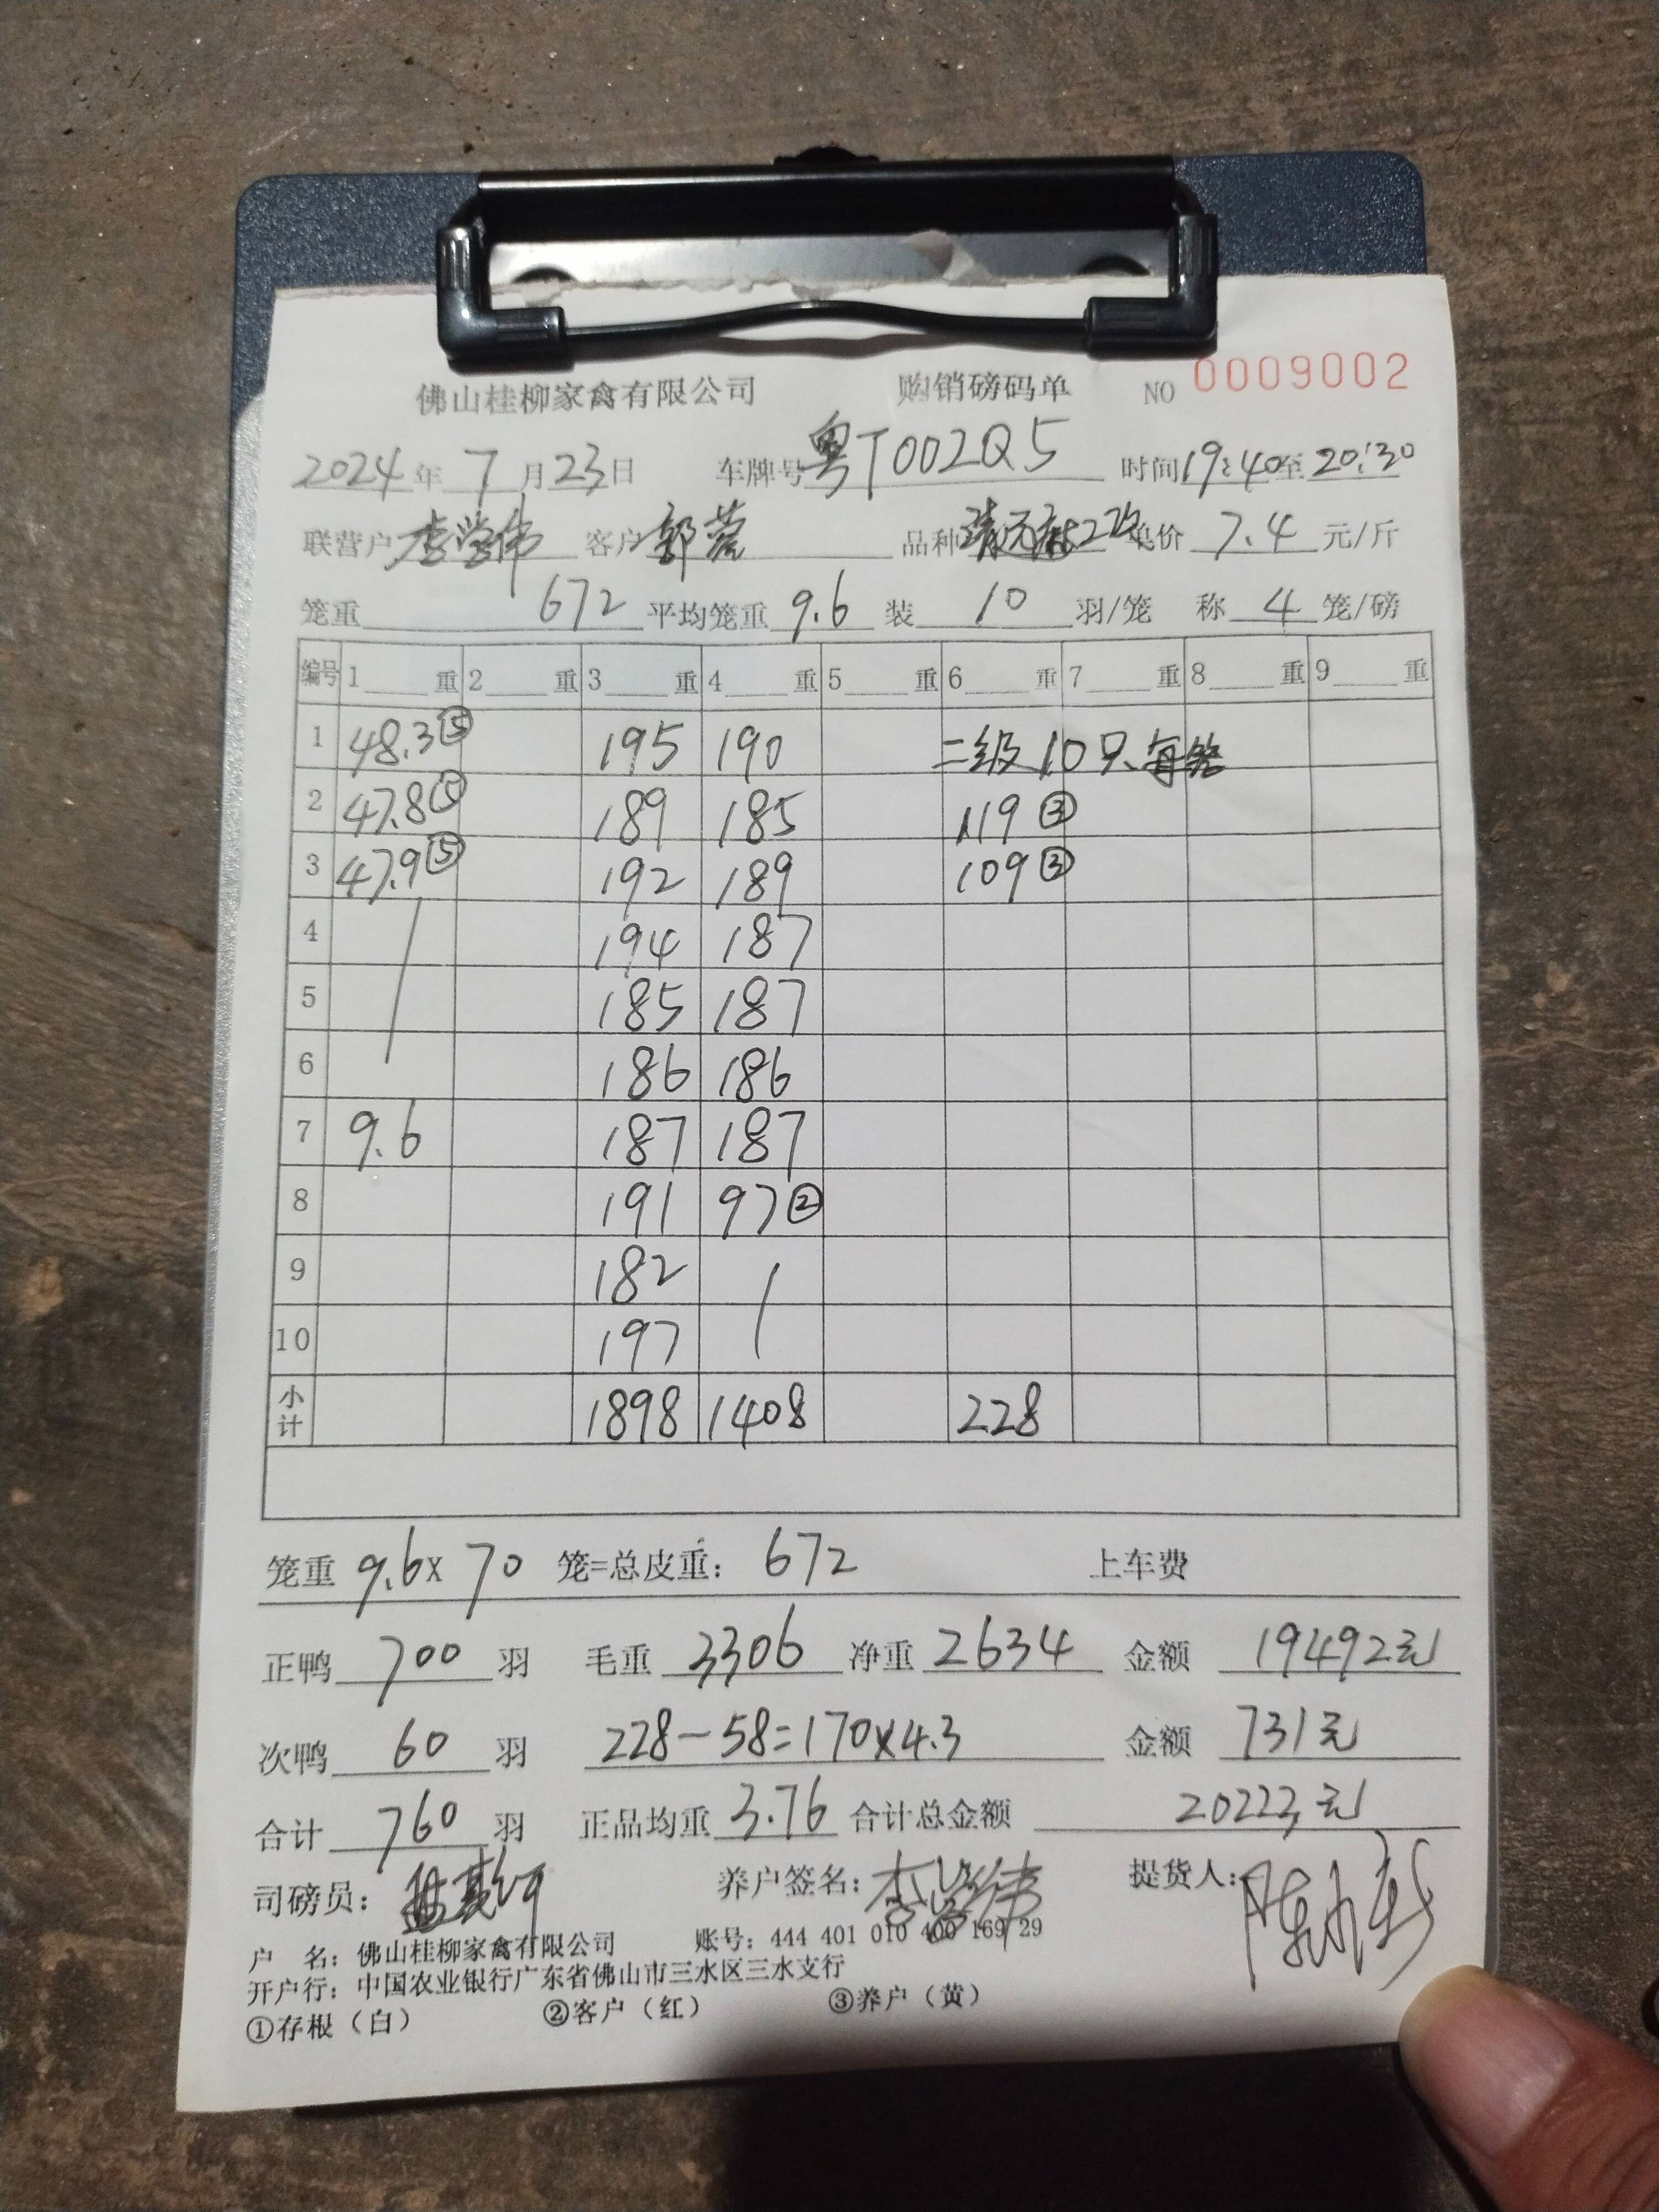 佛山桂柳家禽有限公司 购销磅码单 NO 0009002
2024年 7月23日 车牌号 粤T002Q5 时间19:40至20:30
联营户 李学伟 客户 郭莹 品种 单价 7.4 元/斤
笼重 672 平均笼重 9.6 装 10 羽/笼 称 4 笼/磅
编号 1 重 2 重 3 重 4 重 5 重 6 重 7 重 8 重 9 重
1 48.3⑤ 195 190 二级10只每笼
2 47.8⑤ 189 185 119③
3 47.9⑤ 192 189 109③
4 194 187
5 185 187
6 186 186
7 9.6 187 187
8 191 97②
9 182
10 197
小计 1898 1408 228
笼重 9.6x 70 笼=总皮重: 672 上车费
正鸭 700 羽 毛重 3306 净重 2634 金额 19492元
次鸭 60 羽 228-58=170x4.3 金额 731元
合计 760 羽 正品均重 3.76 合计总金额 20223元
司磅员: 养户签名: 李学伟 提货人:
户 名: 佛山桂柳家禽有限公司 账号: 444 401 010 400 169 29
开户行: 中国农业银行广东省佛山市三水区三水支行
①存根（白） ②客户（红） ③养户（黄）